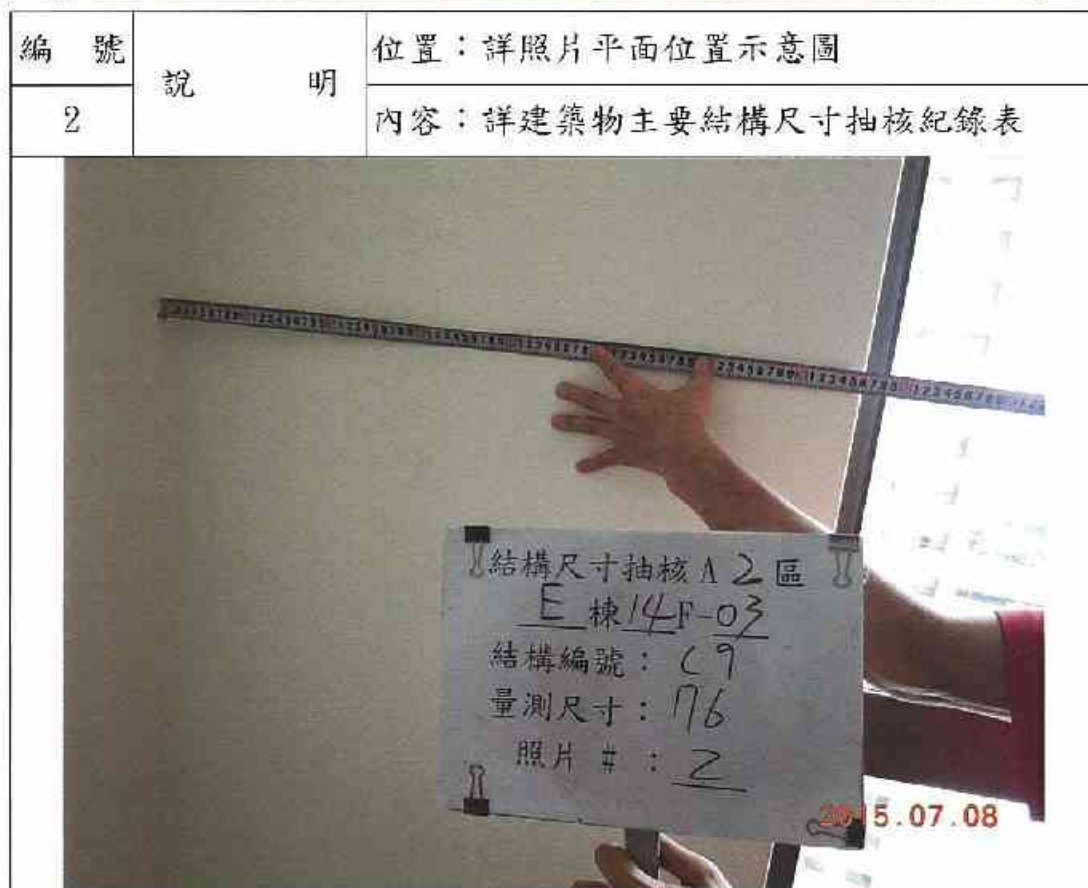 編 號
說 明
位置：詳照片平面位置示意圖
2
內容：詳建築物主要結構尺寸抽核紀錄表
結構尺寸抽核A2區
E棟14F-03
結構編號：C9
量測尺寸：76
照片#：2
2015.07.08